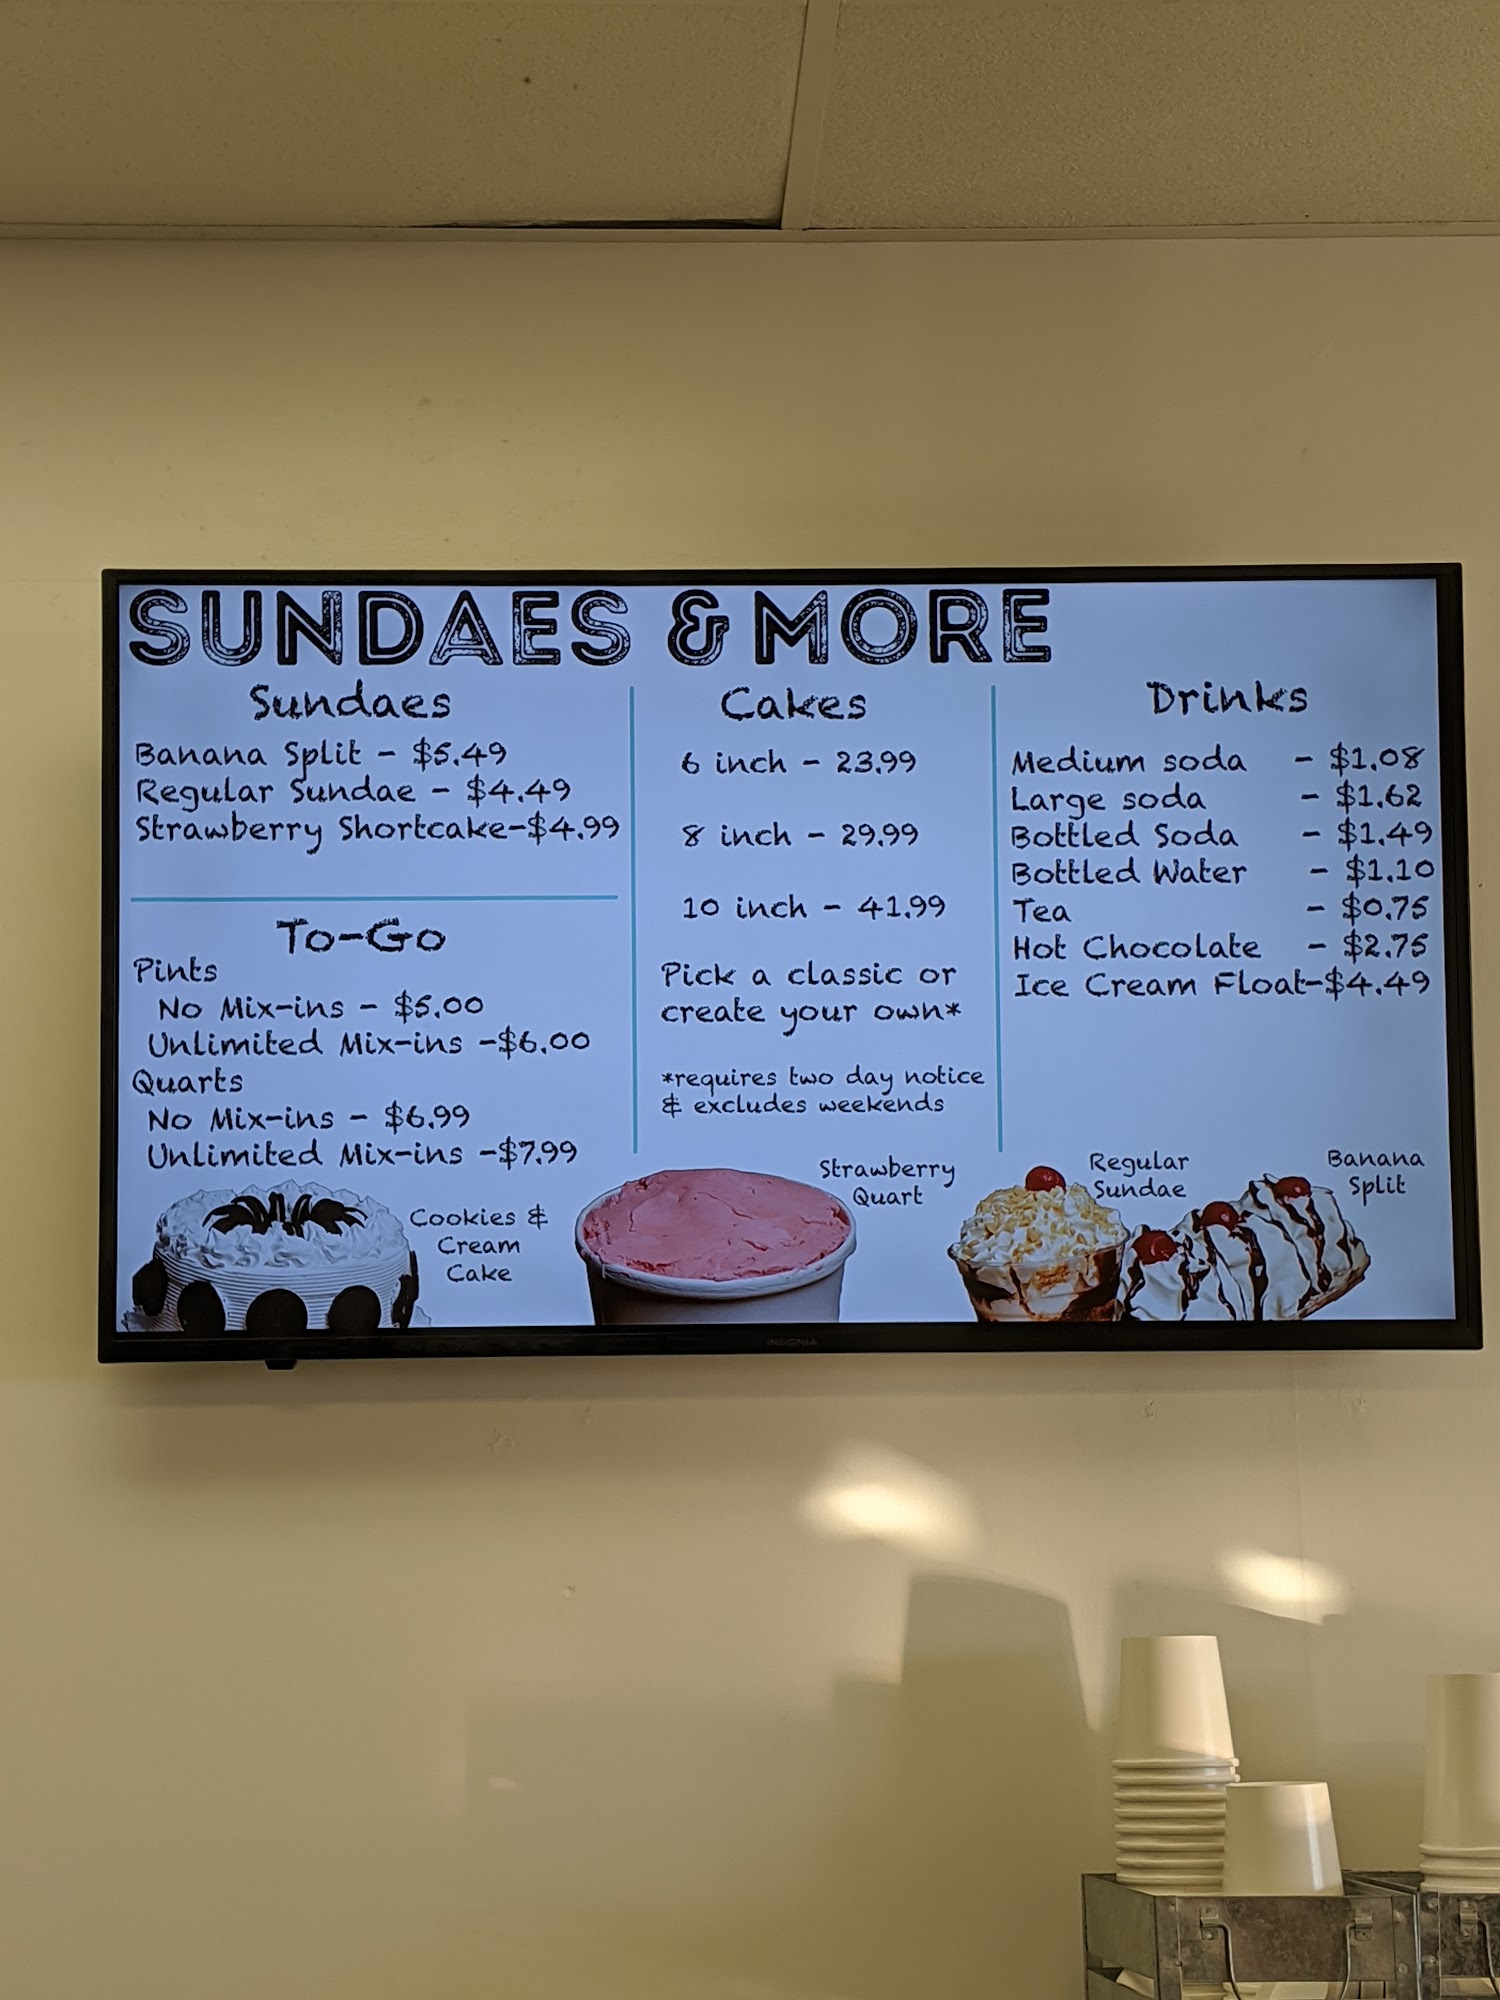 SUNDAES & MORE
Sundaes
Banana Split - $5.49
Regular Sundae - $4.49
Strawberry Shortcake-$4.99
To-Go
Pints
No Mix-ins - $5.00
Unlimited Mix-ins -$6.00
Quarts
No Mix-ins - $6.99
Unlimited Mix-ins -$7.99
Cakes
6 inch - 23.99
8 inch - 29.99
10 inch - 41.99
Pick a classic or
create your own*
*requires two day notice
& excludes weekends
Drinks
Medium soda - $1.08
Large soda - $1.62
Bottled Soda - $1.49
Bottled Water - $1.10
Tea - $0.75
Hot Chocolate - $2.75
Ice Cream Float-$4.49
Cookies &
Cream
Cake
Strawberry
Quart
Regular
Sundae
Banana
Split
INSIGNIA